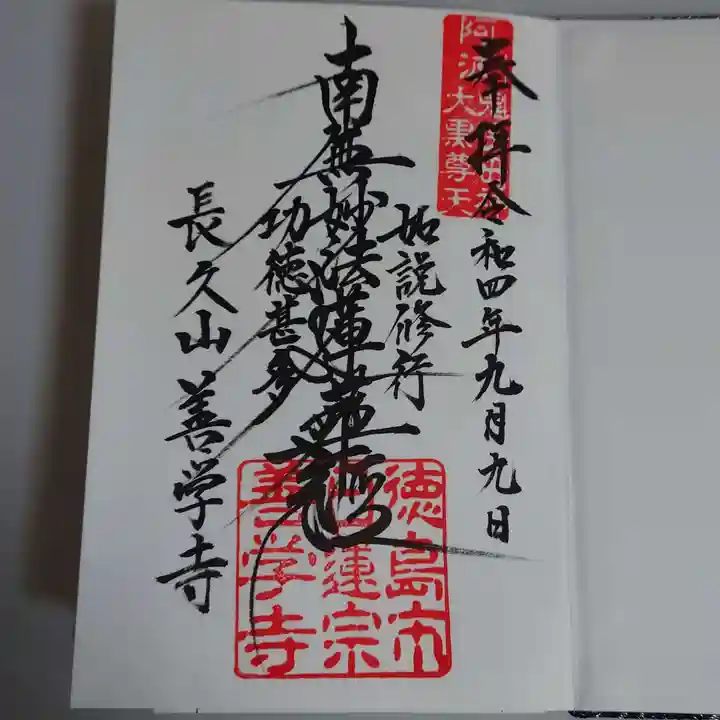 奉拝 令和四年九月九日
阿波大黒尊天
如説修行
南無妙法蓮華経
功徳甚多
長久山 善学寺
徳島市
日蓮宗
善学寺